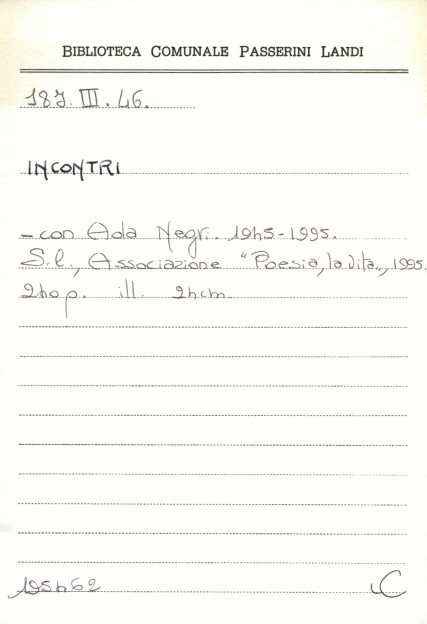 BIBLIOTECA COMUNALE PASSERINI LANDI
187. III. 46.
INCONTRI
- con Ada Negri. 1945-1995.
S.l., Associazione "Poesia, la vita", 1995.
240 p. ill. 24 cm.
195462
C